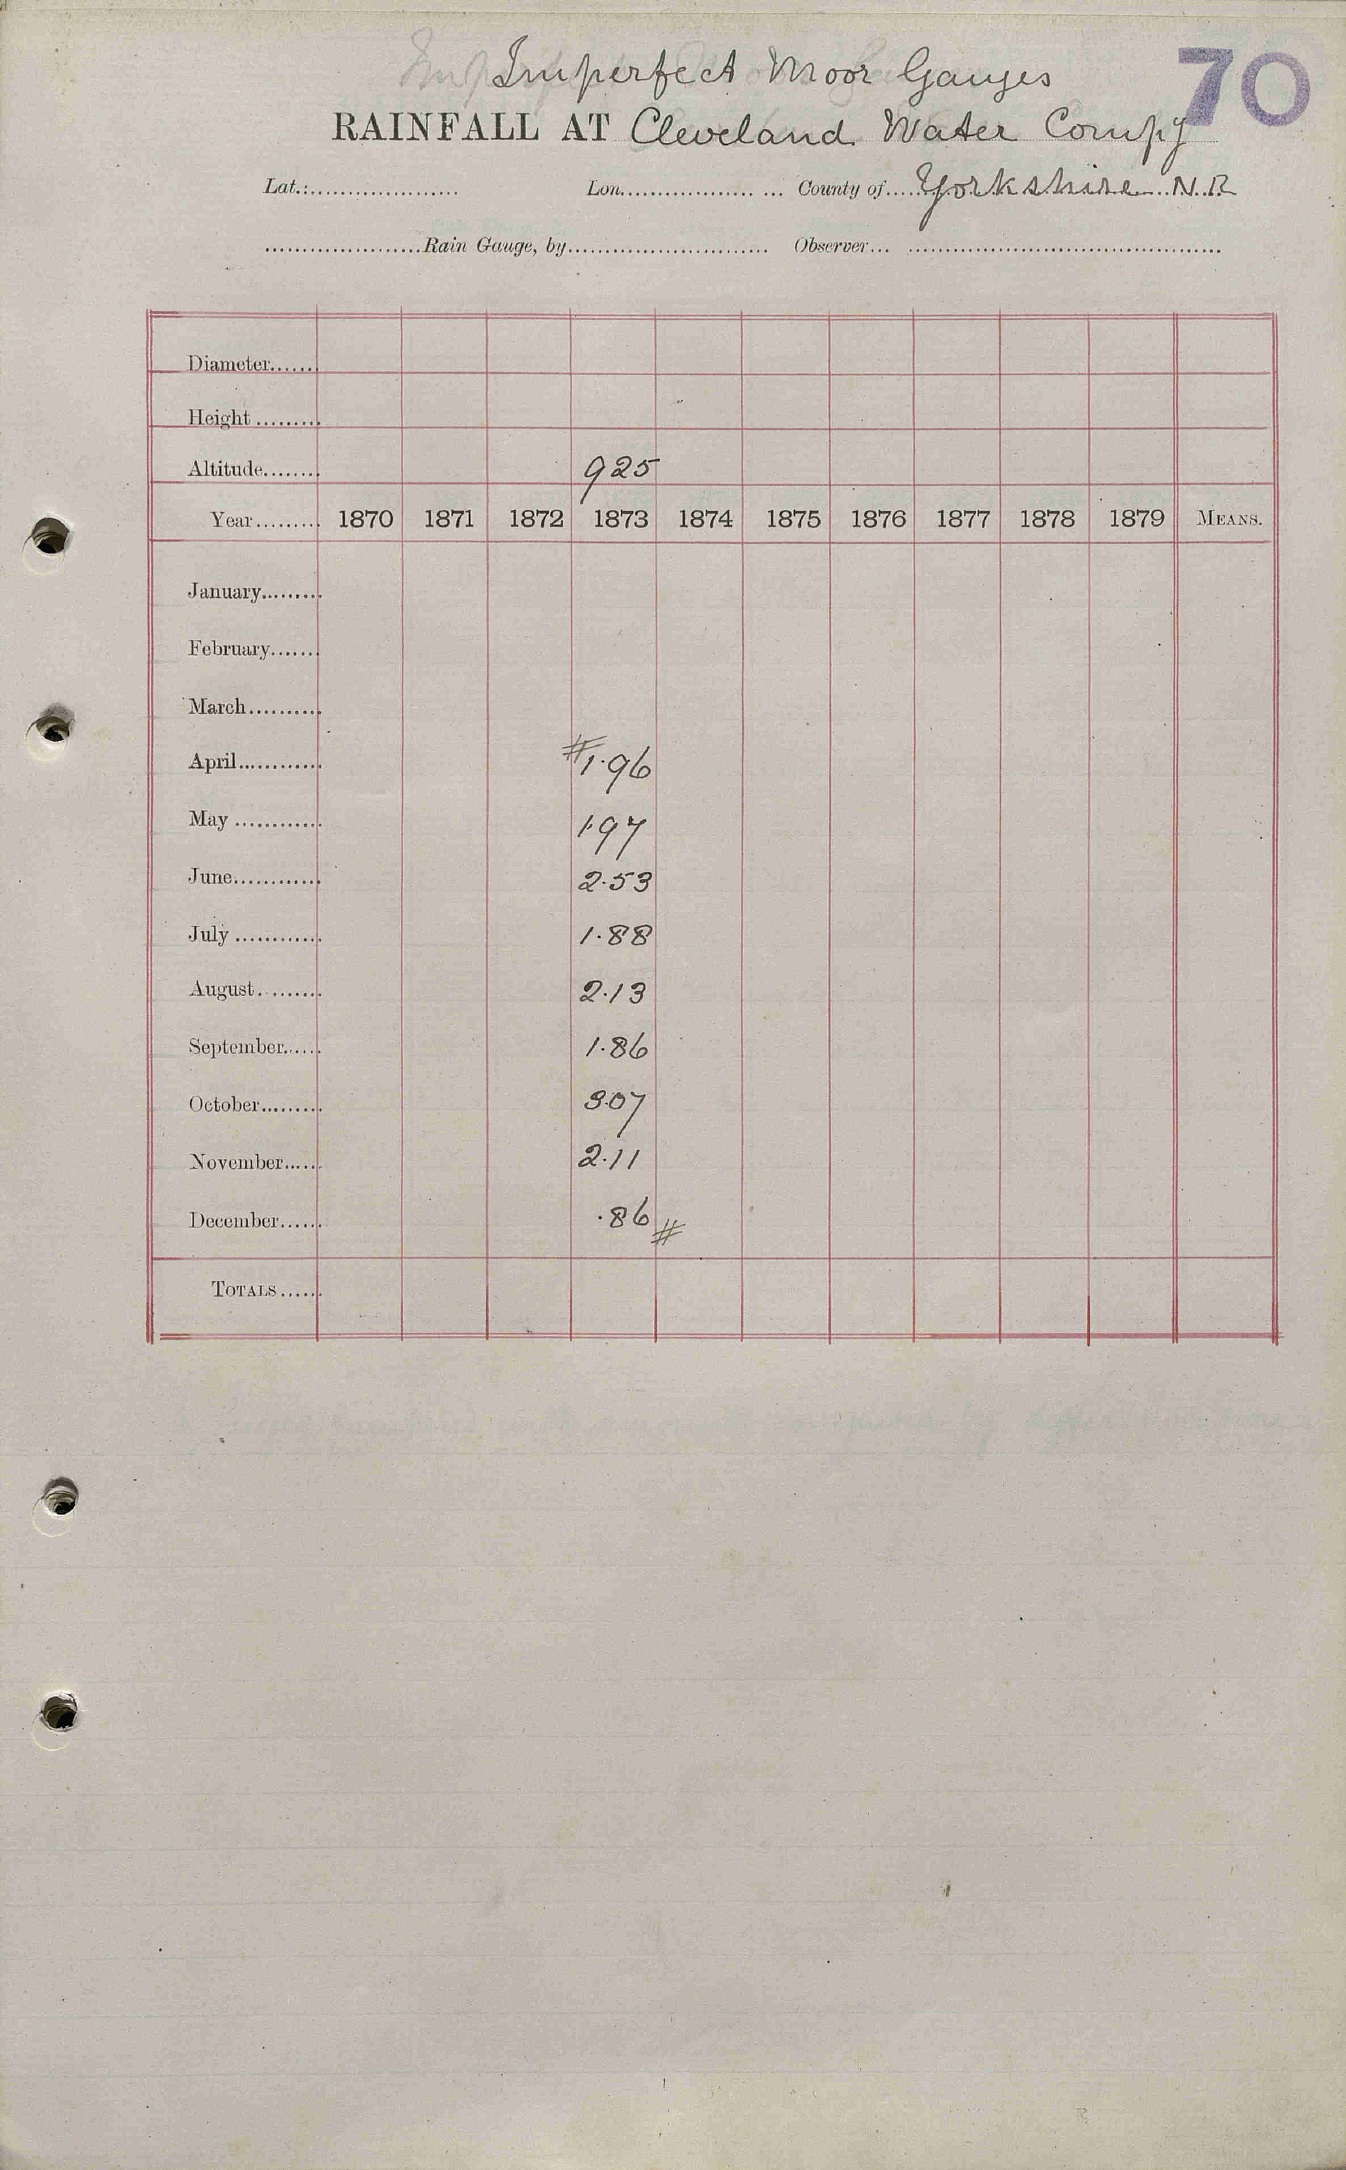 Imperfect Moor Gauges 70
RAINFALL AT Cleveland Water Compy
Lat. Lon. County of Yorkshire N.R.
Rain Gauge, by Observer
Diameter
Height
Altitude 925
Year 1870 1871 1872 1873 1874 1875 1876 1877 1878 1879 MEANS.
January
February
March
April #1.96
May 1.97
June 2.53
July 1.88
August 2.13
September 1.86
October 3.07
November 2.11
December .86 #
TOTALS